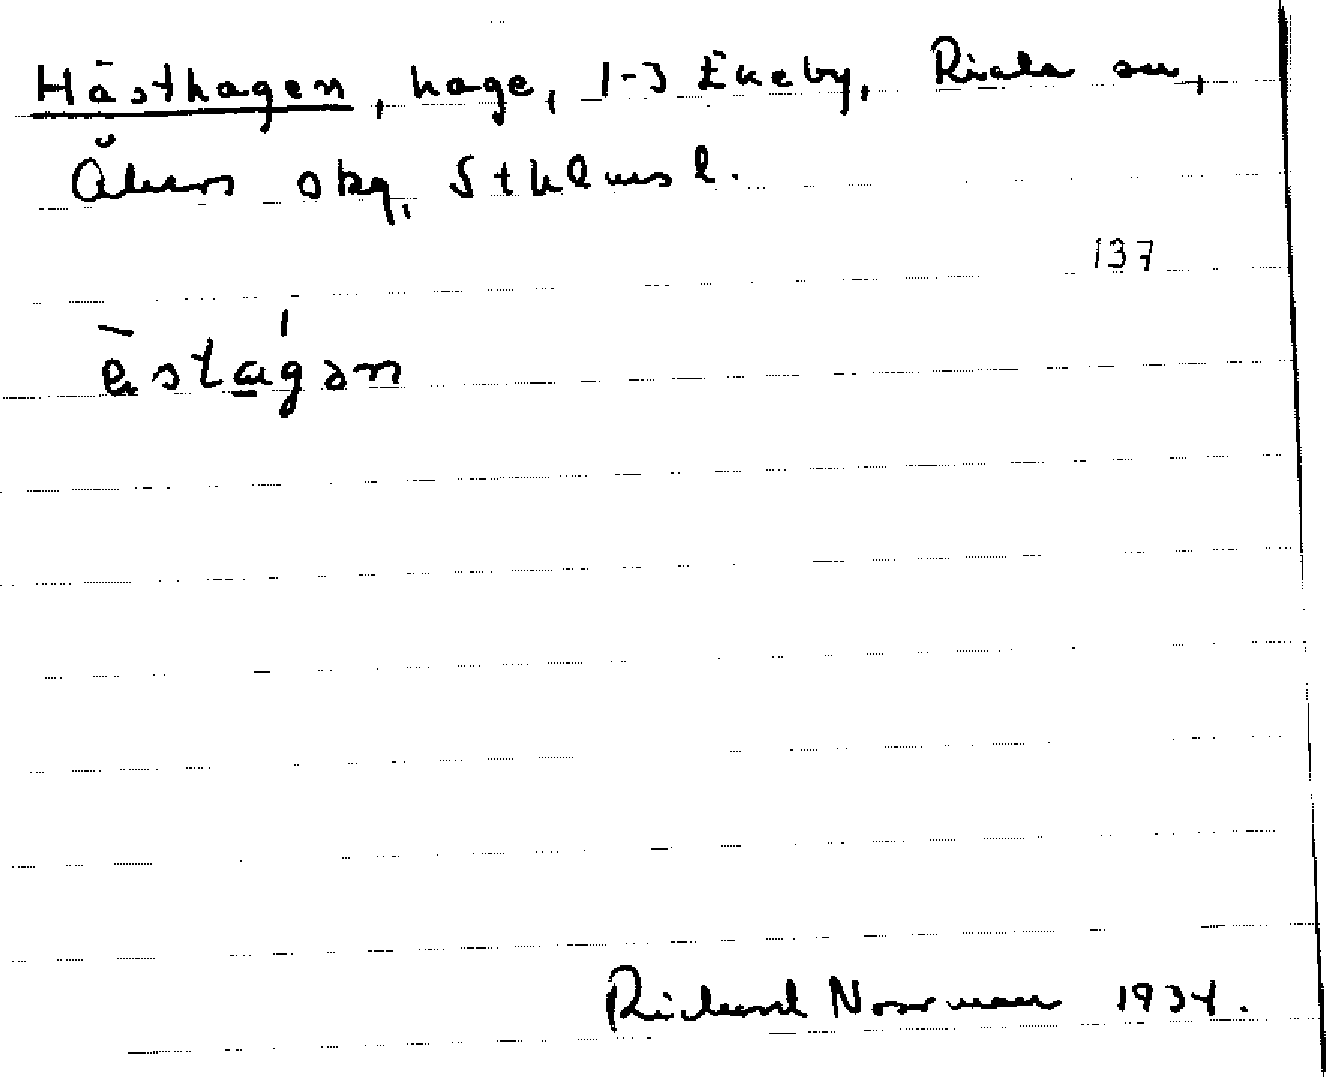 Hästhagen, hage, 1-3 Ekeby, Riala sn,
Åkers skg, Sthlms l.
137
èstágən
Richard Norrman 1934.